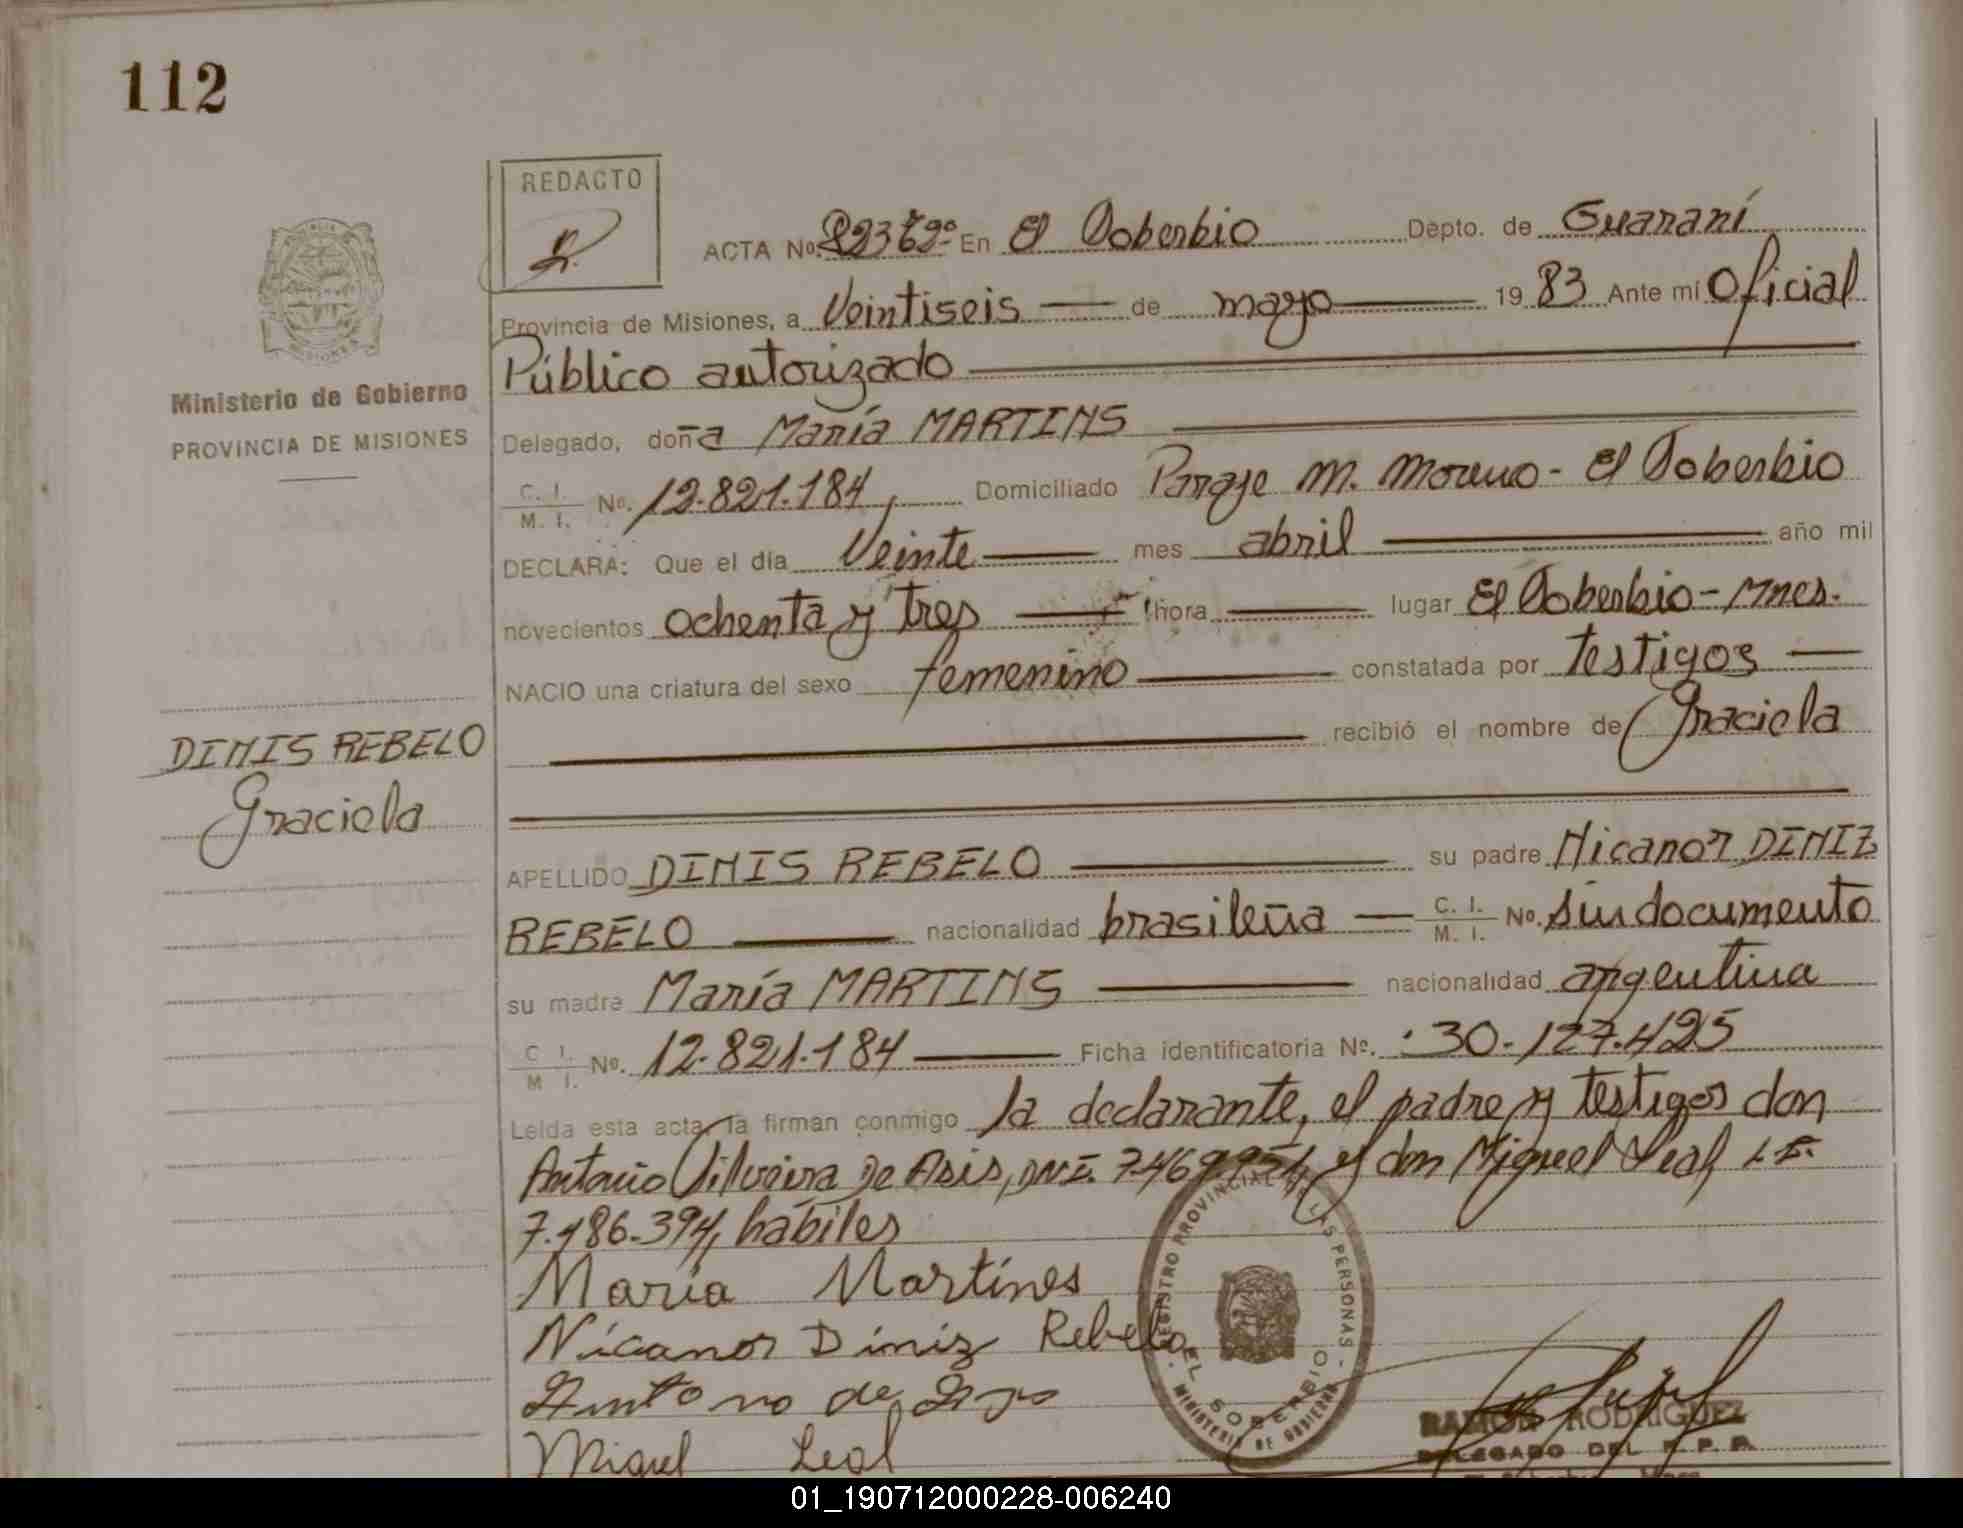 112
REDACTO
ACTA No. En El Soberbio Depto. de Guaraní
Provincia de Misiones, a Veintiseis de mayo 19 83 Ante mí Oficial
Público autorizado
Delegado, doña María MARTINS
C. I.
M. I. No. 12.821.184, Domiciliado Paraje M. Moreno - El Soberbio
DECLARA: Que el día Veinte mes abril año mil
novecientos ochenta y tres hora lugar El Soberbio - Mnes.
NACIO una criatura del sexo femenino constatada por testigos
recibió el nombre de Graciela
Ministerio de Gobierno
PROVINCIA DE MISIONES
DINIS REBELO
Graciela
APELLIDO DINIS REBELO su padre Nicanor DINIZ
REBELO nacionalidad brasileña C. I. M. I. No. sin documento
su madre María MARTINS nacionalidad argentina
C. I.
M. I. No. 12.821.184 Ficha identificatoria No. 30.127.425
Leída esta acta, la firman conmigo la declarante, el padre y testigos don
Antonio Silveira De Asis, DNI. y don Miguel Leal L.E.
7.486.394, hábiles
María Martínes
Nicanor Diniz Rebelo
Miguel Leal
REGISTRO PROVINCIAL DE LAS PERSONAS
EL SOBERBIO
MINISTERIO DE GOBIERNO
RAMON RODRIGUEZ
DELEGADO DEL R. P. P.
01_190712000228-006240